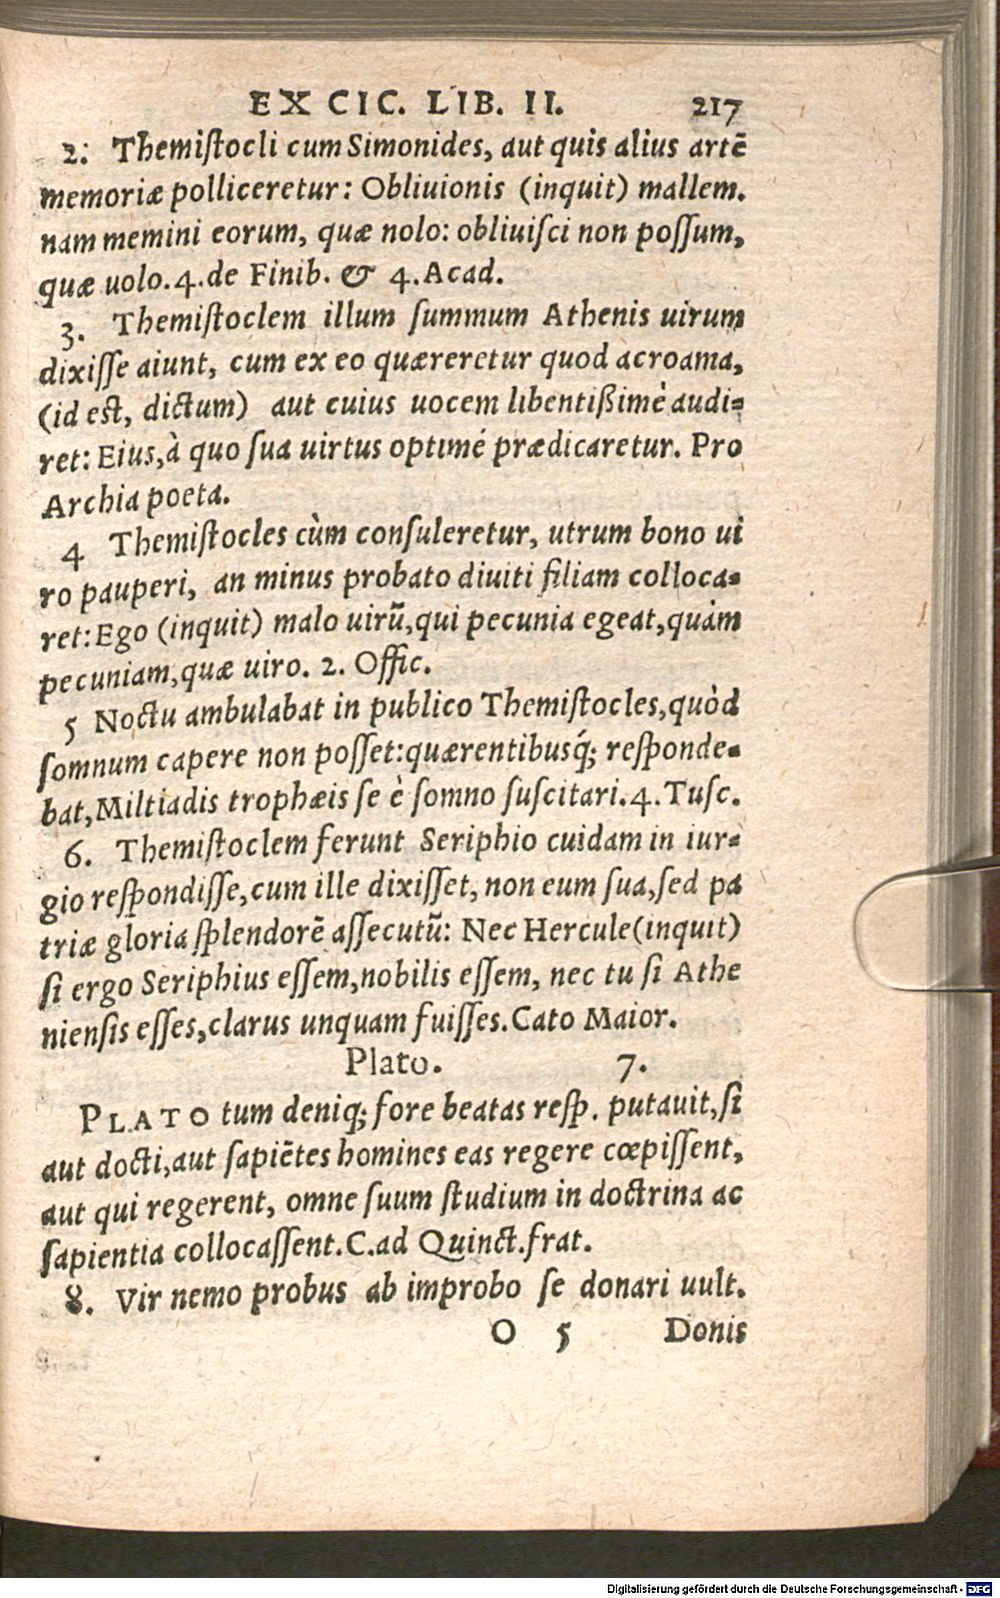 EX CIC. LIB. II. 217
2. Themiſtocli cum Simonides, aut quis alius artē
memoriæ polliceretur: Obliuionis (inquit) mallem.
nam memini eorum, quæ nolo: obliuiſci non poſſum,
quæ uolo. 4. de Finib. & 4. Acad.
3. Themiſtoclem illum ſummum Athenis uirum
dixiſſe aiunt, cum ex eo quæreretur quod acroama,
(id eſt, dictum) aut cuius uocem libentißimè audi-
ret: Eius, à quo ſua uirtus optimé prædicaretur. Pro
Archia poeta.
4 Themiſtocles cùm conſuleretur, utrum bono ui
ro pauperi, an minus probato diuiti filiam colloca-
ret: Ego (inquit) malo uirū, qui pecunia egeat, quàm
pecuniam, quæ uiro. 2. Offic.
5 Noctu ambulabat in publico Themiſtocles, quòd
ſomnum capere non poſſet: quærentibusq́; reſponde-
bat, Miltiadis trophæis ſe è ſomno ſuſcitari. 4. Tuſc.
6. Themiſtoclem ferunt Seriphio cuidam in iur-
gio reſpondiſſe, cum ille dixiſſet, non eum ſua, ſed pa
triæ gloria ſplendorē aſſecutū: Nec Hercule (inquit)
ſi ergo Seriphius eſſem, nobilis eſſem, nec tu ſi Athe
nienſis eſſes, clarus unquam fuiſſes. Cato Maior.
Plato. 7.
PLATO tum deniq; fore beatas reſp. putauit, ſi
aut docti, aut ſapiētes homines eas regere cœpiſſent,
aut qui regerent, omne ſuum ſtudium in doctrina ac
ſapientia collocaſſent. C. ad Quinct. frat.
8. Vir nemo probus ab improbo ſe donari uult.
O 5 Donis
Digitalisierung gefördert durch die Deutsche Forschungsgemeinschaft - DFG